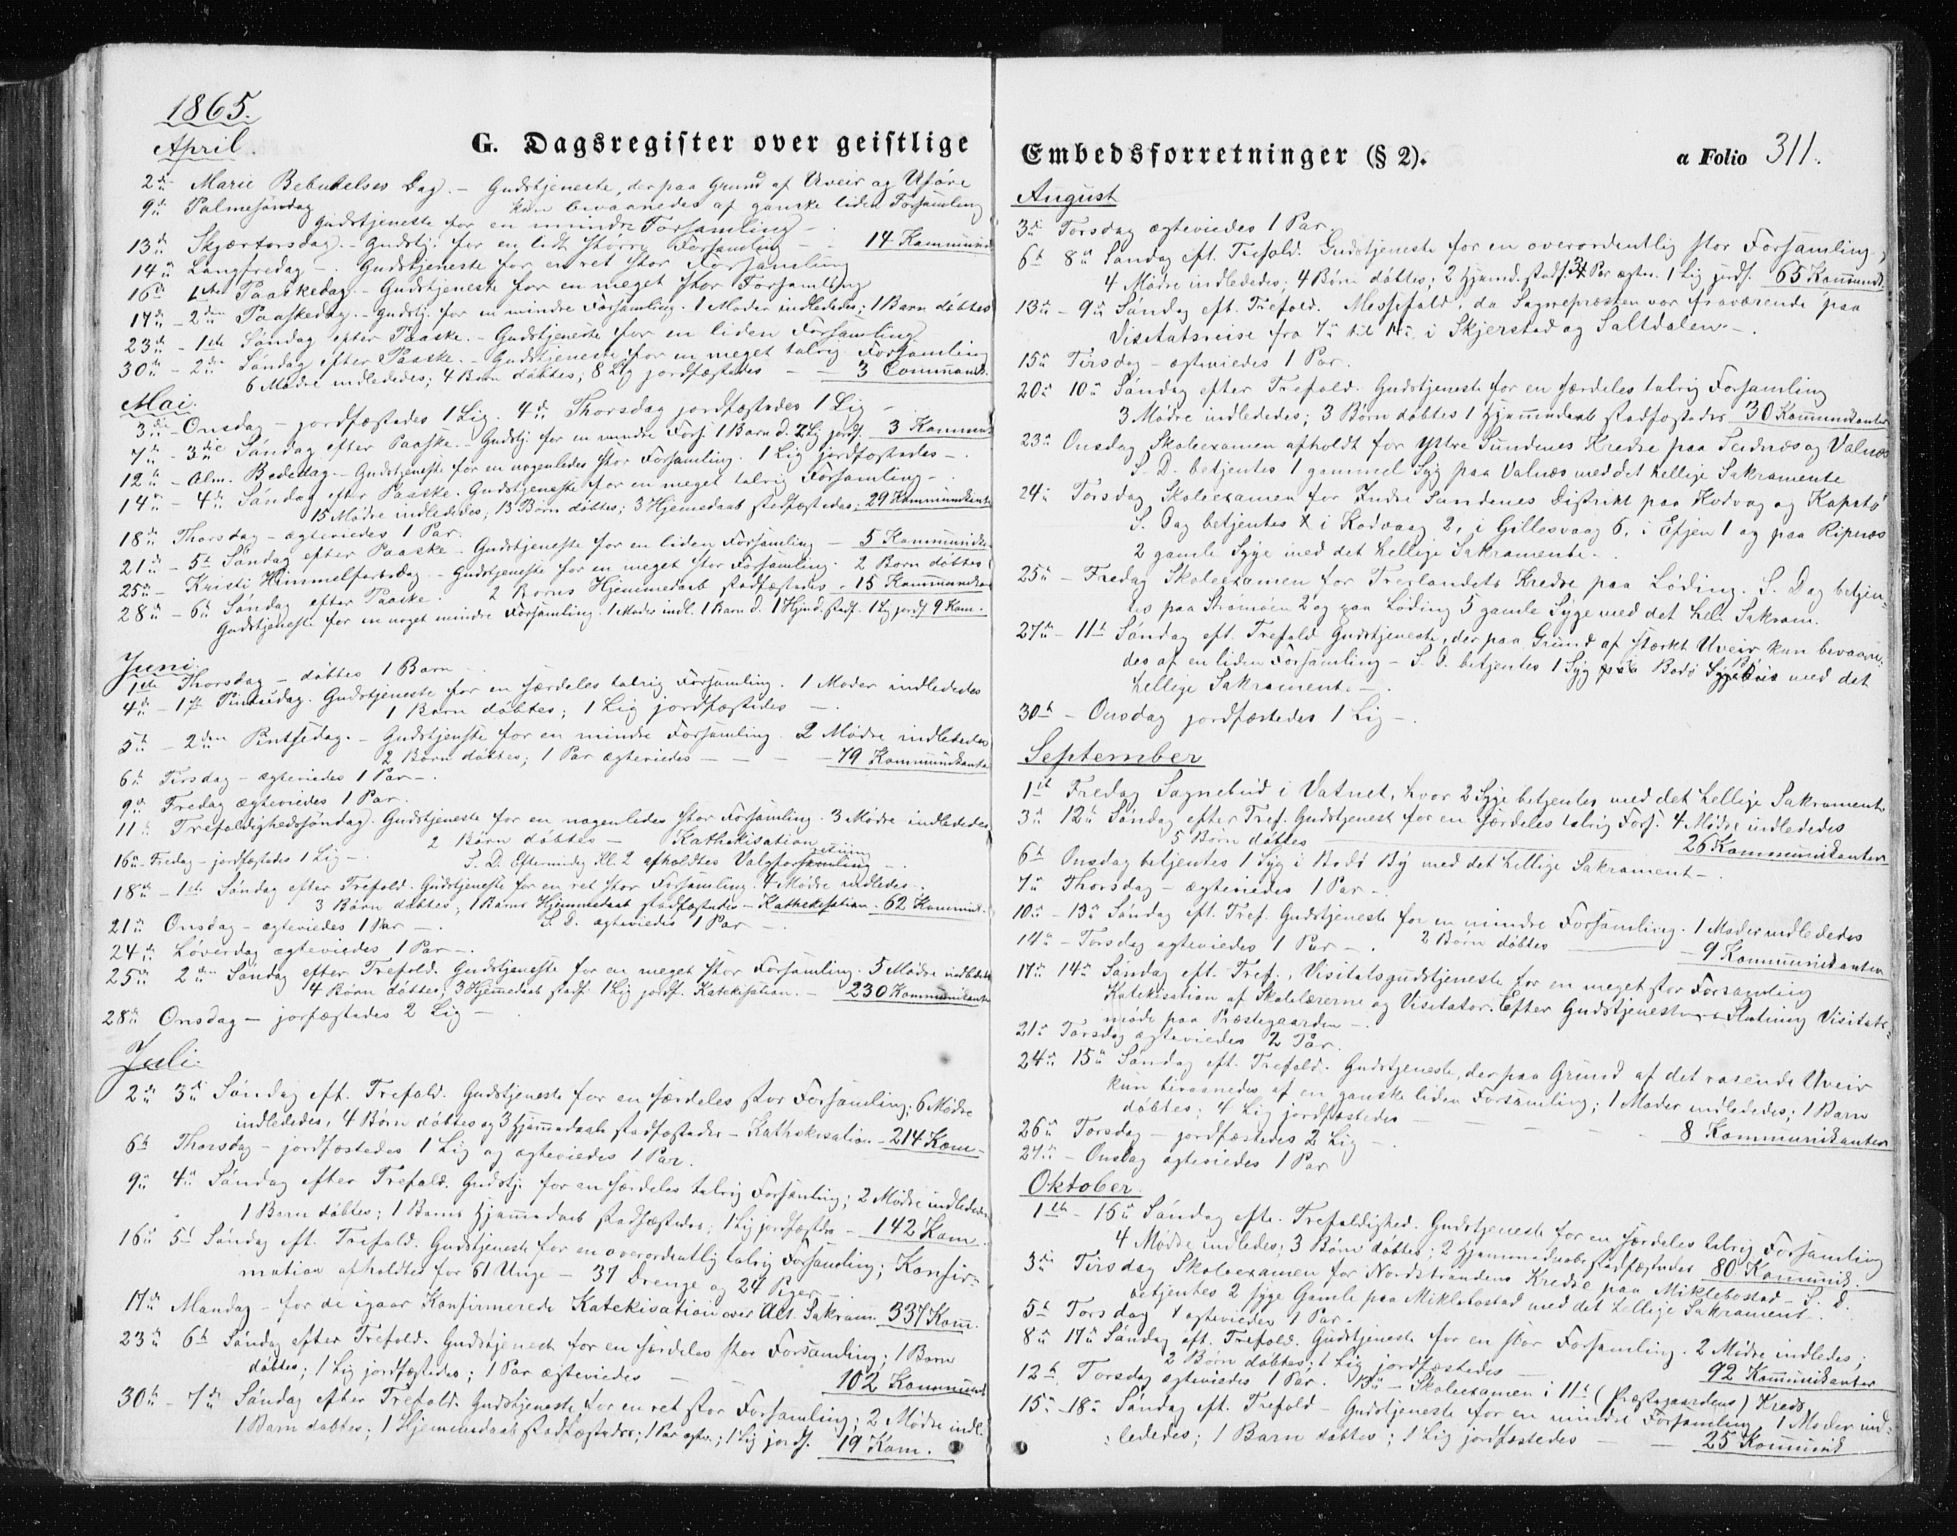 1865.
April.
G. Dagsregister over geistlige
2den Marie Bebudelses Dag. - Gudstjeneste, der paa Grund af Uveir og Uføre
kun bevaanedes af ganske liden Forsamling
9de Palmesøndag
Gudstjeneste for en mindre Forsamling -
13de Skjærtorsdag. - Gudstj. for en lidt større Forsamling - - 14 Kommunik
14de Langfredag - . Gudstjeneste for en ret stor Forsamling
16de 1ste Paaskedag. - Gudstjeneste for en meget stor Forsamling
17de - 2den Paaskedag. - Gudstj. for en mindre Forsamling. 1 Moder indlededes; 1 Barn døbtes
23de - 1ste Søndag efter Paaske. - Gudstjeneste for en liden Forsamling
30te - 2den Søndag efter Paaske. - Gudstjeneste for en meget talrig Forsamling
6 Mødre indlededes; 4 Børn døbtes; 8 Lig jordfæstedes - - 3 Communik.
Mai.
3die Onsdag - jordfæstedes 1 Lig. 4de Thorsdag jordfæstedes 1 Lig -
7de - 3die Søndag efter Paaske. - Gudstj. for en mindre Fors. 1 Barn d. 2 Lig jordf. 3 Kommun
12te - Alm. Bededag. - Gudstjeneste for en nogenledes stor Forsamling. 1 Lig jordfæstedes - .
14de - 4de Søndag efter Paaske. Gudstjeneste for en meget talrig Forsamling -
15 Mødre indlededes; 13 Børn døbtes; 3 Hjemmedaab stadfæstedes; 29 Kommunikanter
18de Thorsdag - ægteviedes 1 Par.
21de - 5te Søndag efter Paaske - Gudstjeneste for en liden Forsamling - 5 Kommunik.
25de - Kristi Himmelfartsdag. - Gudstjeneste for en meget stor Forsamling. 2 Børn døbtes
2 Børns Hjemmedaab stadfæstedes - 15 Kommunikan
28de - 6te Søndag efter Paaske.
Gudstjeneste for en noget mindre Forsamling. 1 Moder indl. 1 Barn d. 1 Hjmd. stadf. 1 Lig jordf 9 Kom.
Juni.
1ste Thorsdag - døbtes 1 Barn -
4de - 1ste Pintsedag. Gudstjeneste for en særdeles talrig Forsamling. 1 Moder indlededes
1 Barn døbtes; 1 Lig jordfæstedes - .
5te - 2den Pintsedag. - Gudstjeneste for en mindre Forsamling. 2 Mødre indlededes
2 Børn døbtes; 1 Par ægteviedes - - - 79 Kommunikanter
6te Tirsdag - ægteviedes 1 Par - .
9de Fredag ægteviedes 1 Par.
11te Trefoldighedssøndag. Gudstjeneste for en nogenledes stor Forsamling. 3 Mødre indlededes
2 Børn døbtes - Kathekisation
16de Fredag - jordfæstedes 1 Lig - . S. D. Eftermiddag Kl. 2 afholdtes Valgforsamling -
18de - 1ste Søndag efter Trefold. Gudstjeneste for en ret stor Forsamling. 4 Mødre indledes -
3 Børn døbtes; 1 Barns Hjemmedaab stadfæstedes - Kathekisation. 62 Kommunik.
21de Onsdag - ægteviedes 1 Par - . S. D. ægteviedes 1 Par - .
24de Løverdag ægteviedes 1 Par - .
25de 2den Søndag efter Trefold. Gudstjeneste for en meget stor Forsamling. 5 Mødre indledtes
4 Børn døbtes, 3 Hjemmedaab stadf. 1 Lig jordf. Katekisation. - 230 Kommunikanter
28de Onsdag - jorfæstedes 2 Lig - .
Juli.
2den 3die Søndag eft. Trefold. Gudstjeneste for en særdeles stor Forsamling; 6 Mødre
indlededes, 4 Børn døbtes og 3 Hjemmedaab stadfæstedes - Kathekisation - 214 Kom -
6te Thorsdag - jordfæstedes 1 Lig og ægteviedes 1 Par.
9de 4de Søndag efter Trefold. Gudstj. for en særdeles talrig Forsamling; 2 Mødre indlededes
1 Barn døbtes; 1 Barns Hjemmedaab stadfæstedes; 1 Lig jordfæstedes - 142 Kom.
16de 5te Søndag eft. Trefold. Gudstjeneste for en overordentlig talrig Forsamling; Konfir-
mation afholdtes for 61 Unge - 37 Drenge og 24 Piger -
17de Mandag - for de igaar Konfirmerede Katekisation over Alt. Sakram. 337 Kom.
23de 6te Søndag efter Trefold. Gudstjeneste for en særdeles stor Forsamling; 1 Barn
døbtes; 1 Lig jordfæstedes; 1 Par ægteviedes - - 102 Kommunik
30te - 7de Søndag efter Trefold. Gudstjeneste for en ret stor Forsamling; 2 Mødre indl.
1 Barn døbtes; 1 Hjemmedaab stadfæstedes; 1 Par ægtv.; 1 Lig jordf. 19 Kom.
Embedsforretninger (§ 2).
a Folio 311.
August
3die Torsdag ægteviedes 1 Par
6te 8de Søndag eft. Trefold. Gudstjeneste for en overordentlig stor Forsamling;
4 Mødre indlededes; 4 Børn døbtes; 2 Hjemmd. stadf. Par ægtev. 1 Lig jordf. 65 Kommunik.
13de - 9de Søndag eft. Trefold. Messefald, da Sognepræsten var fraværende paa
Visitatsreise fra 7de til i Skjerstad og Saltdalen - .
15de Tirsdag - ægteviedes 1 Par.
20de 10de Søndag efter Trefold. Gudstjeneste for en særdeles talrig Forsamling
3 Mødre indlededes; 3 Børn døbtes 1 Hjemmedaab stadfæstedes 30 Kommunikanter
23de Onsdag Skoleexamen afholdt for Yttre Sundenes Kredse paa Seidnæs og Valnæs
S. D. betjentes 1 gammel Syg paa Valnæs med det hellige Sakramente
24de Torsdag Skoleexamen for Indre Sundenes Distrikt paa Kodvag og Kapstø
S. Dag betjentes i Kodvaag 2, i Gillesvaag 6, i Efjen 1 og paa Ripnæs
2 gamle Syge med det hellige Sakramente - .
25de - Fredag Skoleexamen for Tverlandets Kredse paa Løding. S. Dag betjen-
tes paa Strømøen 2 og paa Løding 5 gamle Syge med det hell. Sakram.
27de - 11te Søndag eft. Trefold Gudstjeneste, der paa Grund af stærkt Uveir kun bevaane-
des af en liden Forsamling - S. D. betjentes 1 Syg paa Bodø Sygehuis med det
hellige Sakrament. - .
30te - Onsdag jordfæstedes 1 Lig - .
September
1ste Fredag Sognebud i Vatnet, hvor 2 Syge betjentes med det hellige Sakrament.
3die 12te Søndag efter Tref. Gudstjenest for en særdeles talrig Fors. 4 Mødre indlededes
5 Børn døbtes 26 Kommunikanter
6te Onsdag betjentes 1 Syg i Bodø By med det hellige Sakrament - .
7de Thorsdag - ægteviedes 1 Par - .
10de - 13de Søndag eft. Tref. Gudstjeneste for en mindre Forsamling. 1 Moder indlededes
14de - Torsdag ægteviedes 1 Par - . 2 Børn døbtes - 9 Kommunikanter
17de 14de Søndag eft. Tref., Visitatsgudstjeneste for en meget stor Forsamling
Katekisation af Skolelærerne og Visitator. Efter Gudstjenestens Slutning Visitats-
møde paa Præstegaarden - .
21de Torsdag ægteviedes 2 Par.
24de 15de Søndag eft. Trefold. Gudstjeneste, der paa Grund af det rasende Uveir
kun bevaanedes af en ganske liden Forsamling; 1 Moder indlededes; 1 Barn
døbtes; 4 Lig jordfæstedes - - - - - 8 Kommunikanter
26de Torsdag - jordfæstedes 2 Lig - .
27de - Onsdag ægteviedes 1 Par
Oktober.
1ste - 16de Søndag efter Trefoldighed. Gudstjeneste for en særdeles talrig Forsamling
4 Mødre indledes; 3 Børn døbtes; 2 Hjemmedaab stadfæstedes 80 Kommunik.
3die Tirsdag Skoleexamen for Nordstrandens Kredse paa Miklebostad S. D.
betjentes 2 syge Gamle paa Miklebostad med det hellige Sakrament.
5te Torsdag ægteviedes 1 Par.
8de 17de Søndag eft. Trefold. Gudstjeneste for en stor Forsamling. 2 Mødre indledes;
2 Børn døbtes; 1 Lig jordfæstedes - 92 Kommunikanter
12te Torsdag ægteviedes 1 Par. 13de - Skoleexamen i 11te (Præstegaardens) Kreds
15de - 18de Søndag eft. Trefold - Gudstjeneste for en mindre Forsamling. 1 Moder ind-
lededes; 1 Barn døbtes; 1 Lig jordfæstedes - - 25 Kommunik